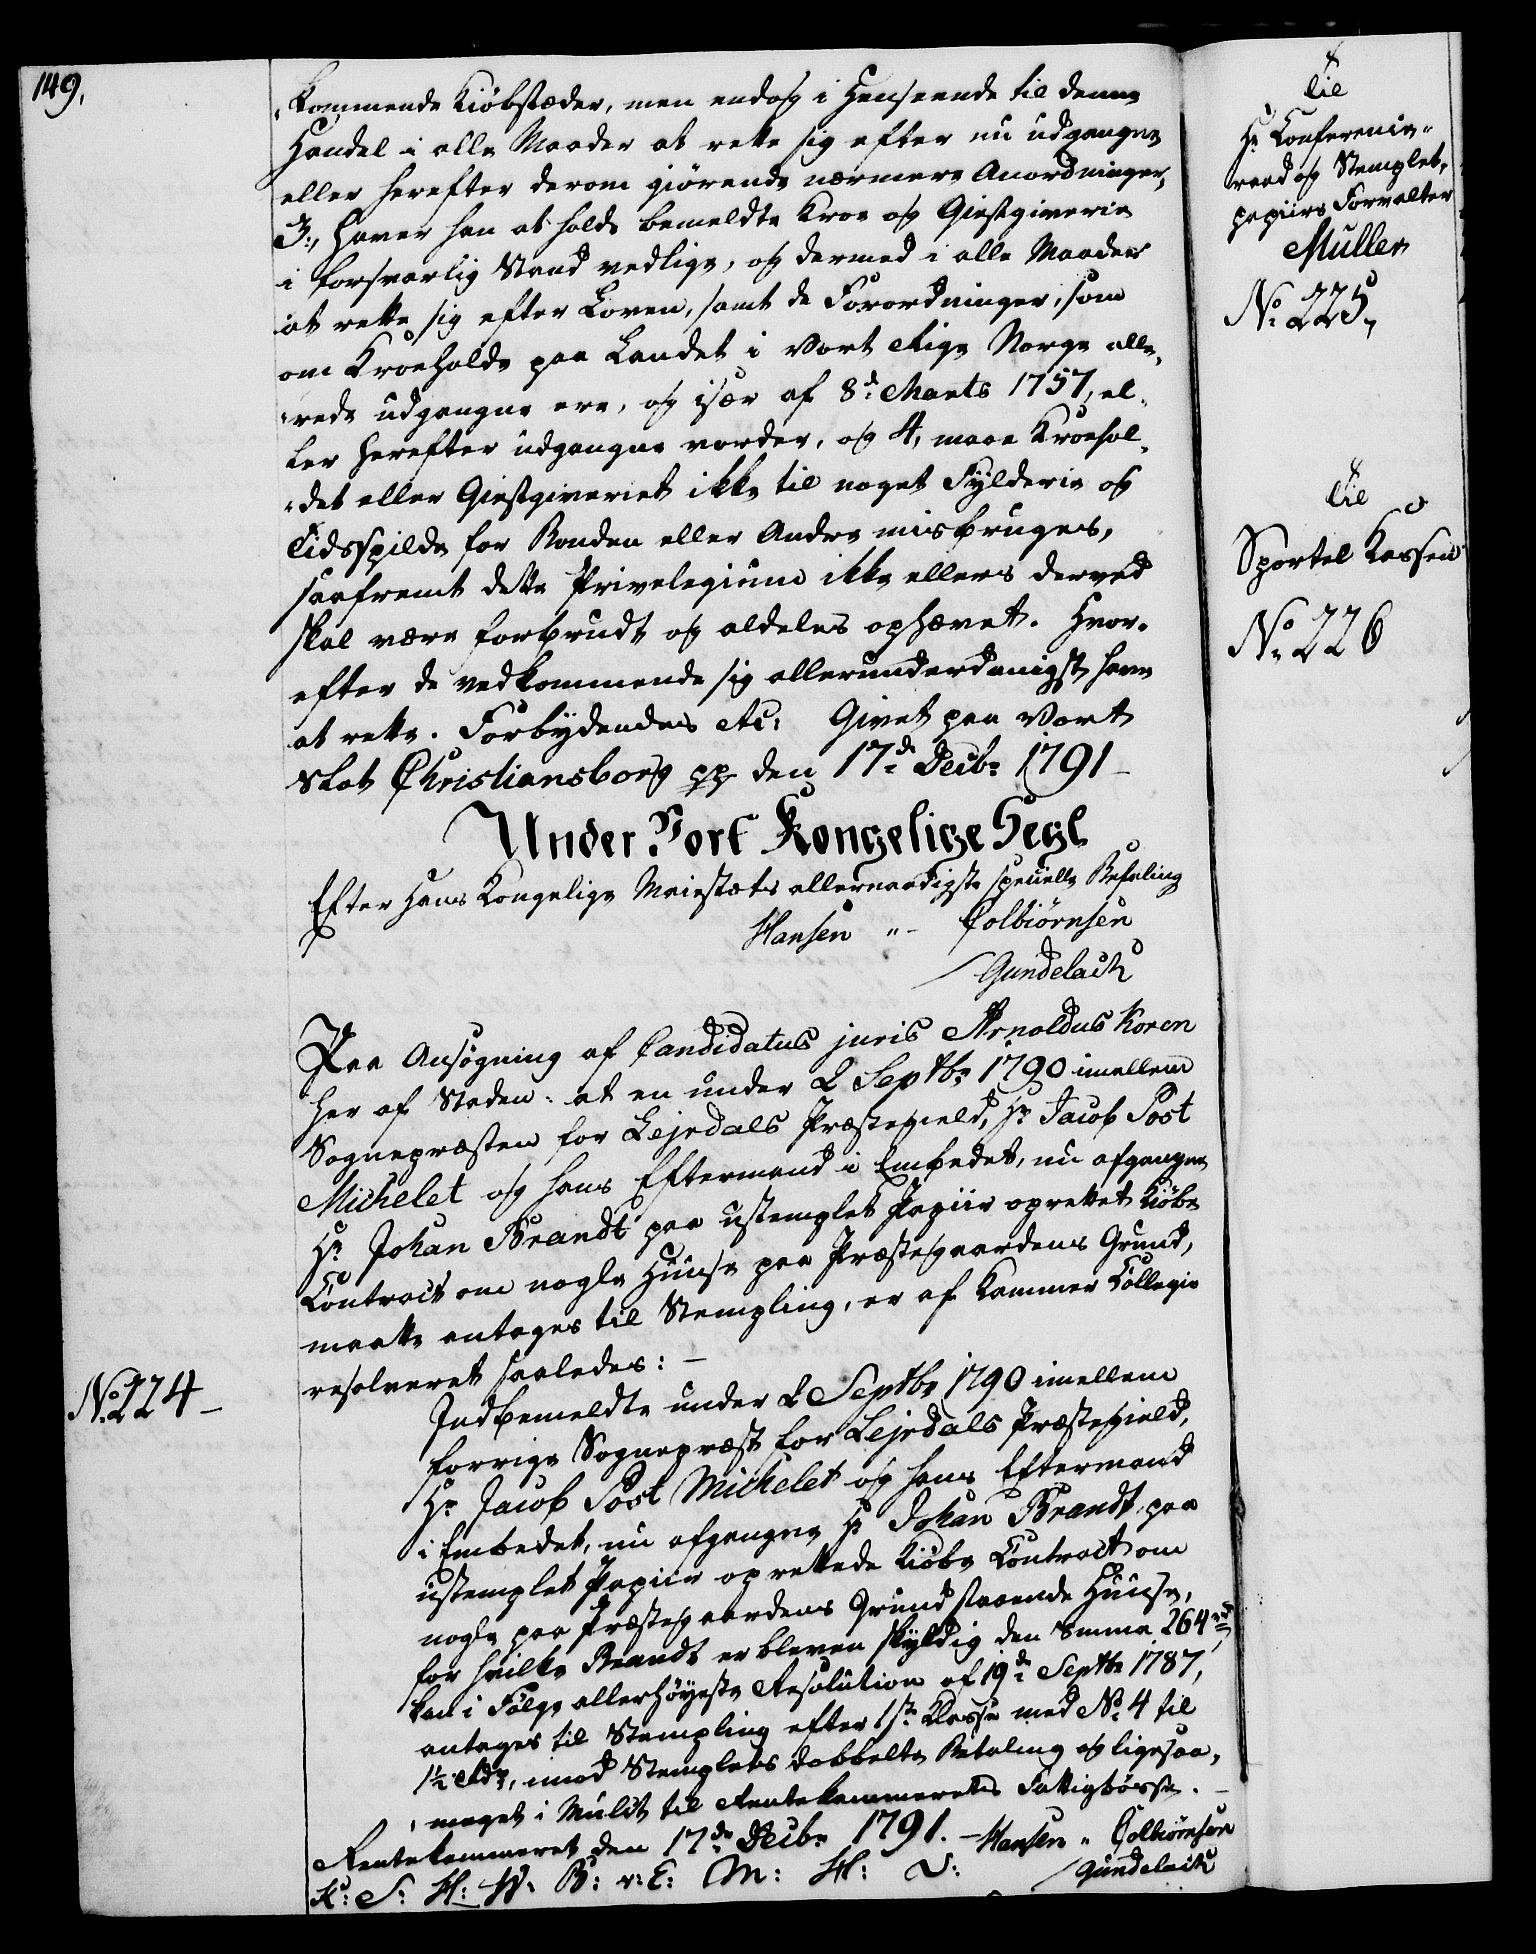 149.
kommende Kiöbstæder, men endog i Henseende til denne
Handel i alle Maader at rette sig efter nu udgangne
eller herefter derom giørende nærmere Anordninger,
3., haver han at holde bemeldte Kroe og Giestgiverie
i forsvarlig Stand vedlige, og dermed i alle Maader
at rette sig efter Loven, samt de Forordninger, som
om Kroeholds paa Landet i Vort Rige Norge alle-
rede udgangne ere, og især af 8de Marts 1757, el-
ler herefter udgangne vorder, og 4, maae Kroehol-
det eller Giestgiveriet ikke til noget Fylderie og
Tidsspilde for Bonden eller Andre misbruges,
saafremt dette Privelegium ikke ellers derved
skal være forbrudt og aldeles ophævet. Hvor-
efter de vedkommende sig allerunderdanigst have
at rette. Forbydendes etc: Givet paa Vort
Slot Christiansborg pp den 17de Decbr 1791
Under Vort Kongelige Segl
Efter Hans Kongelige Maiestæts allernaadigste specielle Befaling
Hansen " - Colbiørnsen
/Gundelach
Paa Ansøgning af Candidatus juris Arnoldus Koren
her af Staden: at en under 2 Septbr 1790 imellem
Sognepræsten for Lejrdals Præstegield, Hr Jacob Post
Michelet og hans Eftermand i Embedet, nu afgangne
Hr Johan Brandt paa ustemplet Papiir oprettet Kiöbe
Contract om nogle Huuse paa Præstegaardens Grund,
maatte antages til Stempling, er af Kammer Collegie
resolveret saaledes: -
No 224 -
Indbemeldte under 2 Septbr 1790 imellem
forrige Sognepræst for Lejrdals Præstegield,
Hr Jacob Post Michelet og hans Eftermand
i Embedet, nu afgangne Hr Johan Brandt, paa
ustemplet Papiir oprettede Kiöbe Contract om
nogle paa Præstegaardens Grund staaende Huuse,
for hvilke Brandt er bleven skyldig den Summa 264 rd,
kan i Følge allerhöyeste Resolution af 19de Septbr 1787,
antages til Stempling efter 1ste Klasse med No 4 til
1½ Rdr, imod Stemplets dobbelte Betaling og ligesaa-
meget i Mulct til Rentekammerets Fattigbösse. -
Rentekammeret den 17de Decbr 1791. - Hansen " Colbiørnsen
K: S: H: W: B: v: E: M: H: /Gundelach
Til
Hr Conferentz-
raad og Stemplet-
papiirs Forvalter
Müller
No 225,
Til
Sportel Kassen
No 226